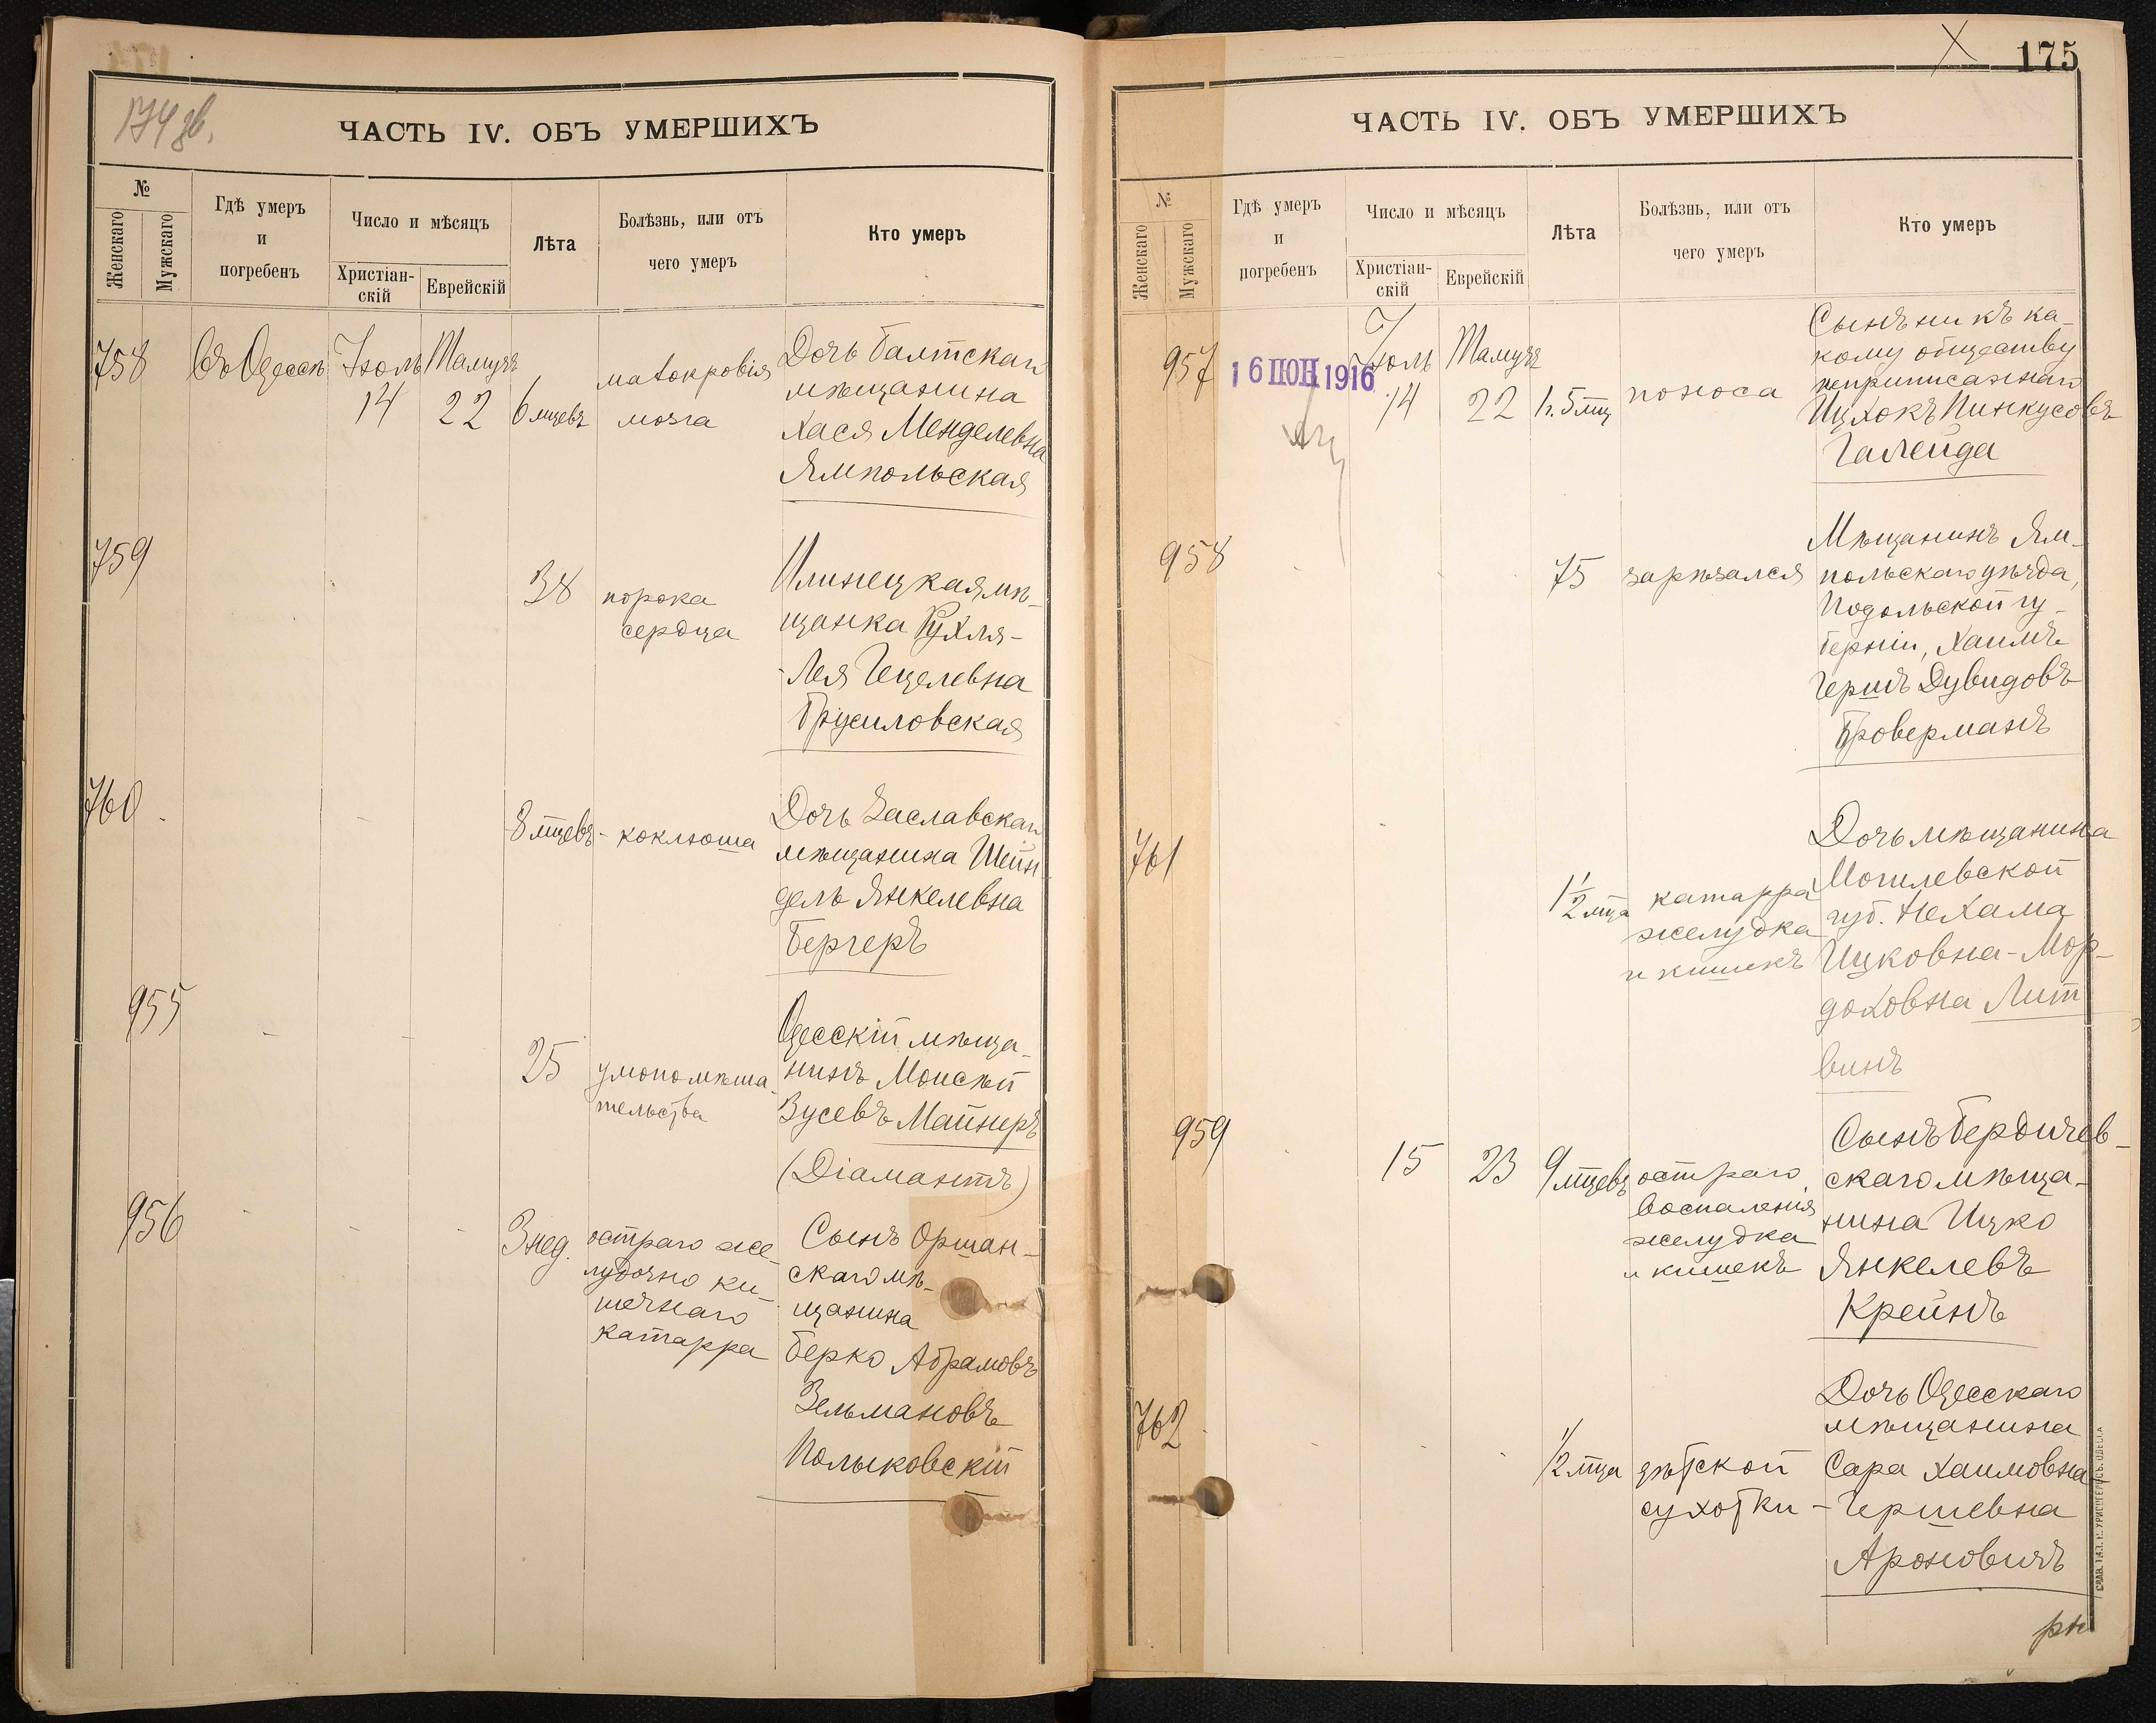 174 об.
ЧАСТЬ IV. ОБЪ УМЕРШИХЪ
№
Женскаго
Мужскаго
Гдѣ умеръ
и
погребенъ
Число и мѣсяцъ
Христіан-
скій
Еврейскій
Лѣта
Болѣзнь, или отъ
чего умеръ
Кто умеръ
758
Въ Одессѣ
Іюль
14
Тамузъ
22
6 мцевъ
малокровія
мозга
Дочь Балтскаго
мѣщанина
Хася Менделевна
Ямпольская
759
38
порока
сердца
Илинецкая мѣ-
щанка Рухля-
-Лея Гецелевна
Брусиловская
760
8 мцевъ
коклюша
Дочь Заславскаго
мѣщанина Шейн-
дель Янкелевна
Бергеръ
955
25
умопомѣша-
тельства
Одесскій мѣща-
нинъ Моисѣй
Зусевъ Майнеръ
(Діамантъ)
956
3 нед.
остраго же-
лудочно ки-
шечнаго
катарра
Сынъ Оршан-
скаго мѣ-
щанина
Берко Абрамовъ
Зельмановъ
Полыковскій
175
ЧАСТЬ IV. ОБЪ УМЕРШИХЪ
№
Женскаго
Мужскаго
Гдѣ умеръ
и
погребенъ
Число и мѣсяцъ
Христіан-
скій
Еврейскій
Лѣта
Болѣзнь, или отъ
чего умеръ
Кто умеръ
957
16 ІЮН 1916
Іюль
14
Тамузъ
22
1г. 5 мц
поноса
Сынъ ни къ ка-
кому обществу
неприписаннаго
Ицхокъ Пинкусовъ
Галейда
958
75
зарѣзался
Мѣщанинъ Ям-
польскаго уѣзда,
Подольской гу-
берніи, Хаимъ
Гершъ Дувидовъ
Броверманъ
761
1 1/2 мца
катарра
желудка
и кишекъ
Дочь мѣщанина
Могилевской
губ. Нехама
Ицковна-Мор-
доховна Лит
винъ
959
15
23
9 мцевъ
остраго
воспаленія
желудка
и кишекъ
Сынъ Бердичев-
скаго мѣща-
нина Ицко
Янкелевъ
Крейнъ
762
1/2 мца
дѣтской
сухотки
Дочь Одесскаго
мѣщанина
Сара Хаимовна-
-Гершевна
Ароновичъ